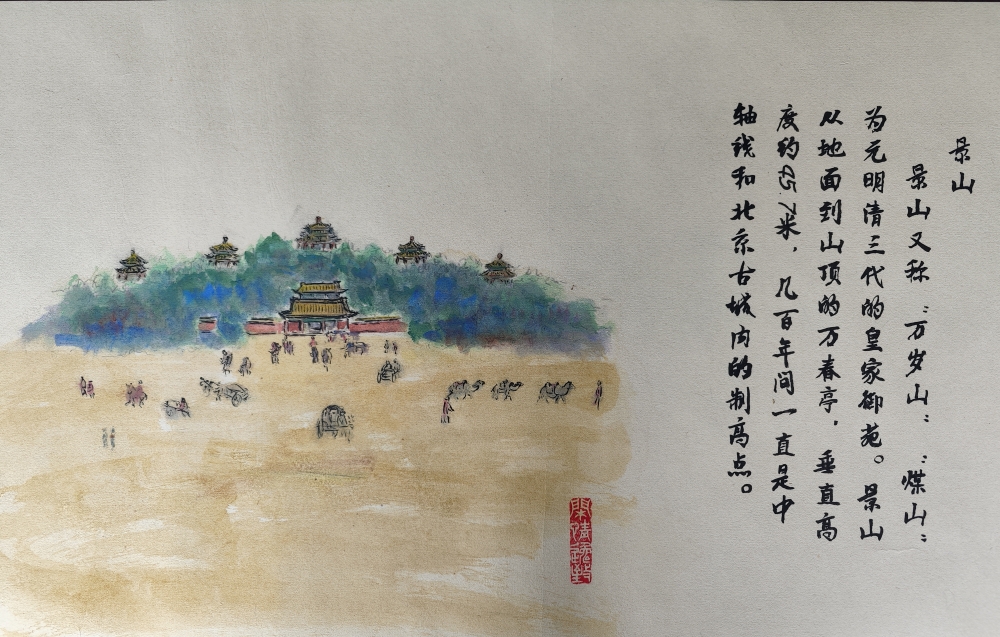 景山
景山又称“万岁山”“煤山”
为元明清三代的皇家御苑。景山
从地面到山顶的万春亭，垂直高
度约45.7米，几百年间一直是中
轴线和北京古城内的制高点。